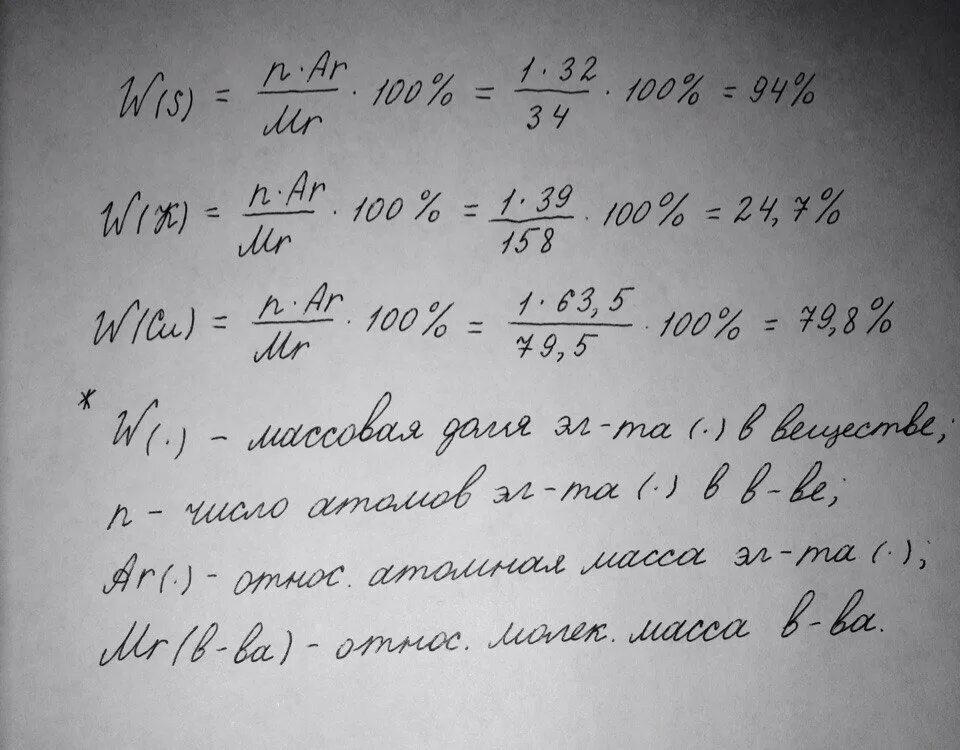 W(S) = n·Ar/Mr · 100% = 1·32/34 · 100% = 94%
W(K) = n·Ar/Mr · 100% = 1·39/158 · 100% = 24,7%
W(Cu) = n·Ar/Mr · 100% = 1·63,5/79,5 · 100% = 79,8%
* W(·) – массовая доля эл-та (·) в веществе;
n – число атомов эл-та (·) в в-ве;
Ar(·) – относ. атомная масса эл-та (·);
Mr(в-ва) – относ. молек. масса в-ва.